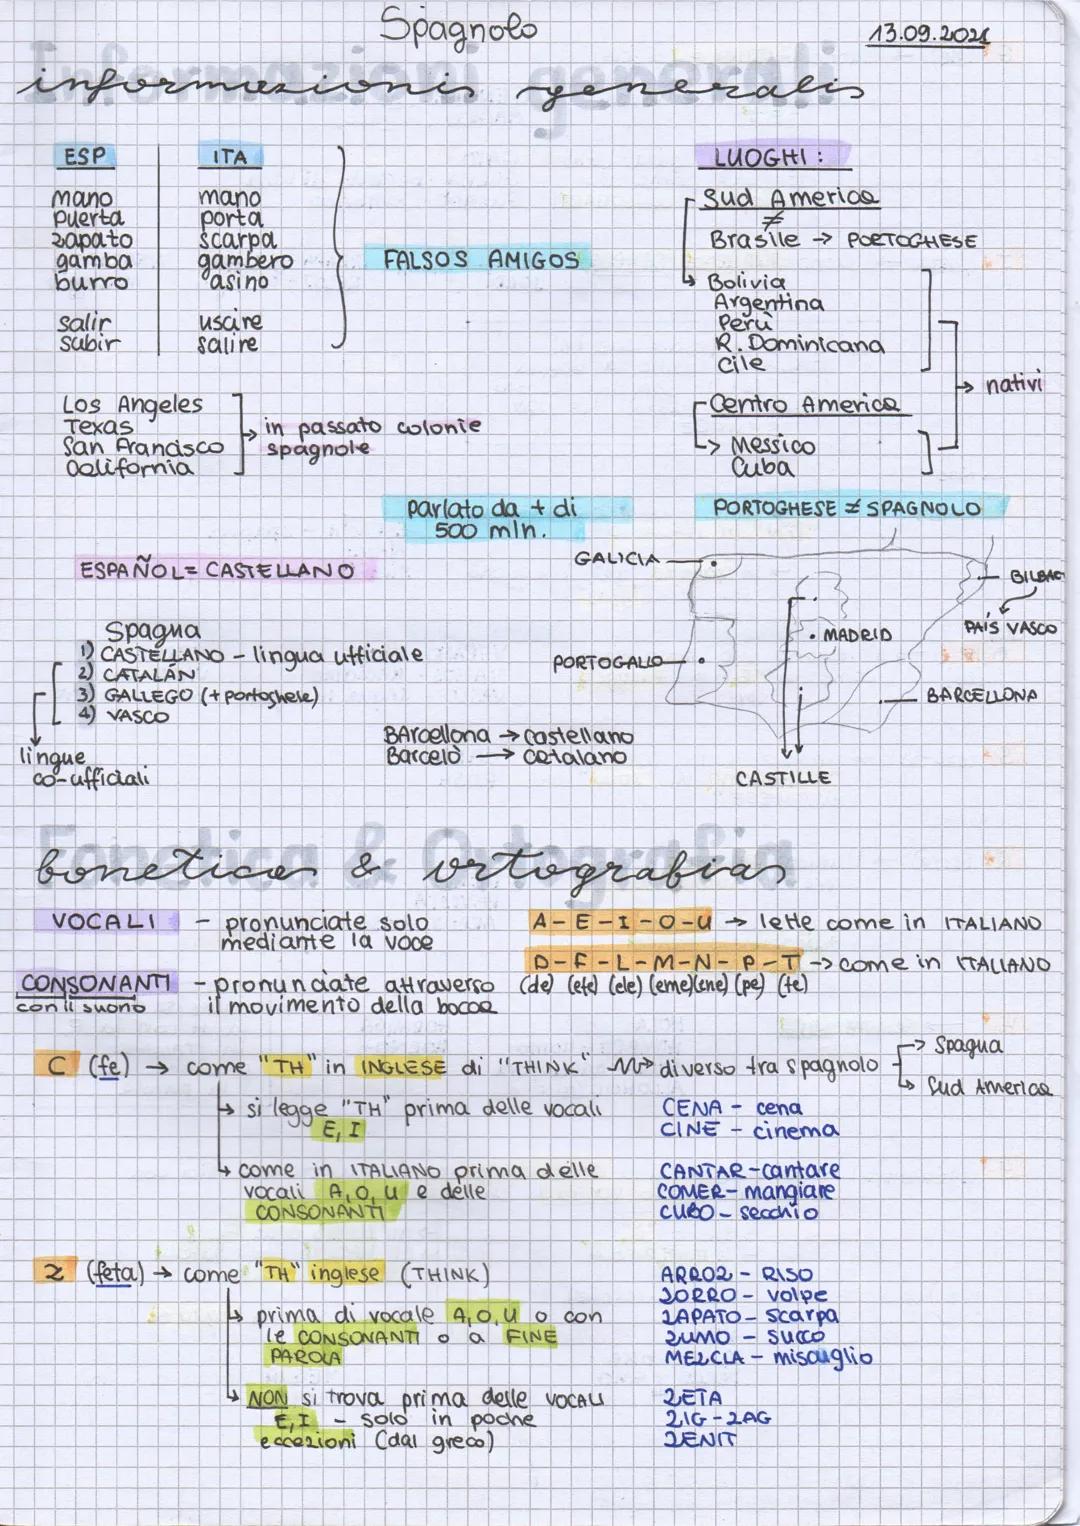 Spagnolo
13.09.2021
Informazioni generali
informazioni generali
ESP ITA
mano mano
puerta porta
zapato scarpa
gamba gambero
burro asino
salir uscire
subir salire
FALSOS AMIGOS
LUOGHI :
Sud America
≠
Brasile → PORTOGHESE
Bolivia
Argentina
Perù
R. Dominicana
Cile
Centro America
Messico
Cuba
nativi
Los Angeles
Texas
San Francisco
California
in passato colonie
spagnole
parlato da + di
500 mln.
PORTOGHESE ≠ SPAGNOLO
ESPAÑOL = CASTELLANO
GALICIA
BILBAO
PAÍS VASCO
MADRID
PORTOGALLO
BARCELLONA
CASTILLE
Spagna
1) CASTELLANO - lingua ufficiale
2) CATALÁN
3) GALLEGO (+ portoghese)
4) VASCO
lingue
co-ufficiali
BArcellona → castellano
Barcelò → catalano
Fonetica & Ortografia
fonetica & ortografia
VOCALI - pronunciate solo
mediante la voce
A-E-I-O-U → lette come in ITALIANO
CONSONANTI - pronunciate attraverso
con il suono il movimento della bocca
D-F-L-M-N-P-T → come in ITALIANO
(de) (efe) (ele) (eme) (ene) (pe) (te)
C (fe) → come "TH" in INGLESE di "THINK" → diverso tra spagnolo
Spagna
Sud America
si legge "TH" prima delle vocali
E, I
CENA - cena
CINE - cinema
come in ITALIANO prima delle
vocali A, O, U e delle
CONSONANTI
CANTAR - cantare
COMER - mangiare
CUBO - secchio
Z (feta) → come "TH" inglese (THINK)
prima di vocale A, O, U o con
le CONSONANTI o a FINE
PAROLA
ARROZ - RISO
ZORRO - volpe
ZAPATO - scarpa
ZUMO - succo
MEZCLA - miscuglio
NON si trova prima delle VOCALI
E, I - solo in poche
eccezioni (dal greco)
ZETA
ZIG-ZAG
ZENIT